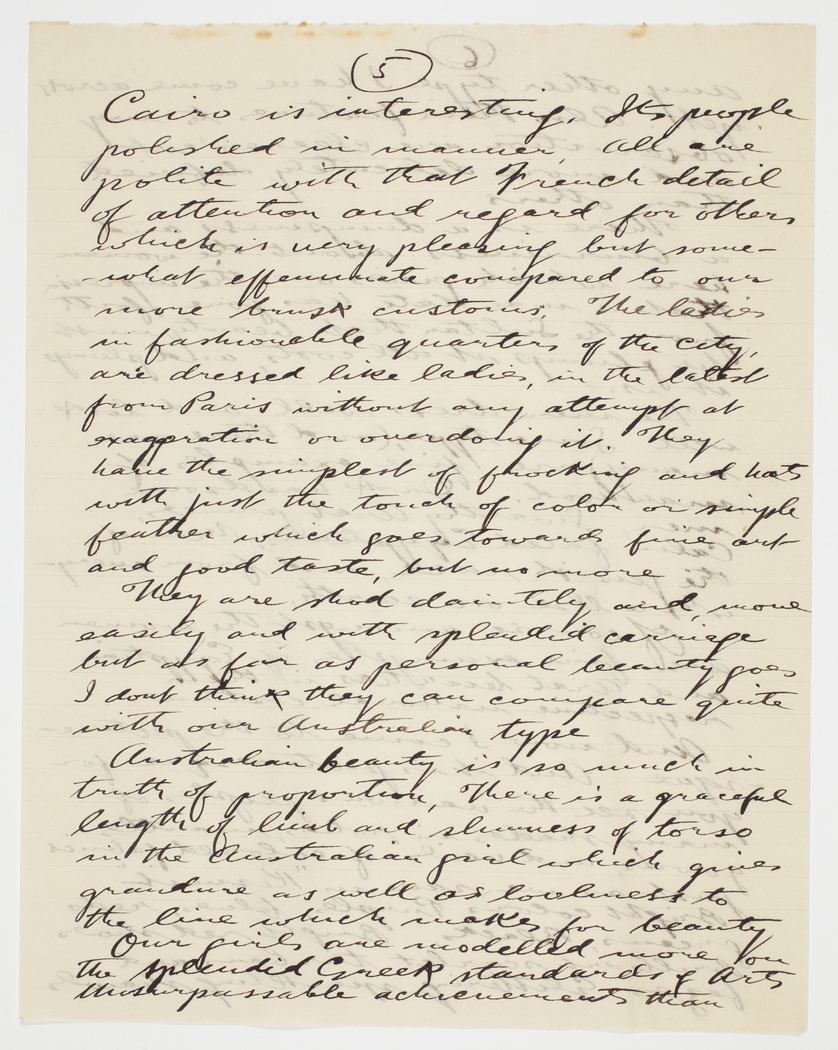 5
Cairo is interesting. Its people
polished in manner, All are
polite with that French detail
of attention and regard for others
which is very pleasing but some-
-what effeminate compared to our
more brusk customs. The ladies
in fashionable quarters of the city,
are dressed like ladies, in the latest
from Paris without any attempt at
exaggeration or overdoing it. They
have the simplest of frocking and hats
with just the touch of color or simple
feather which goes towards fine art
and good taste, but no more
They are shod daintily and move
easily and with splendid carriage
but as far as personal beauty goes
I dont think they can compare quite
with our Australian type
Australian beauty is so much in
truth of proportion, There is a graceful
length of limb and slimness of torso
in the Australian girl which gives
grandure as well as loveliness to
the line which makes for beauty
Our girls are modelled more on
the splendid Greek standards of Arts
unsurpassable achievements than